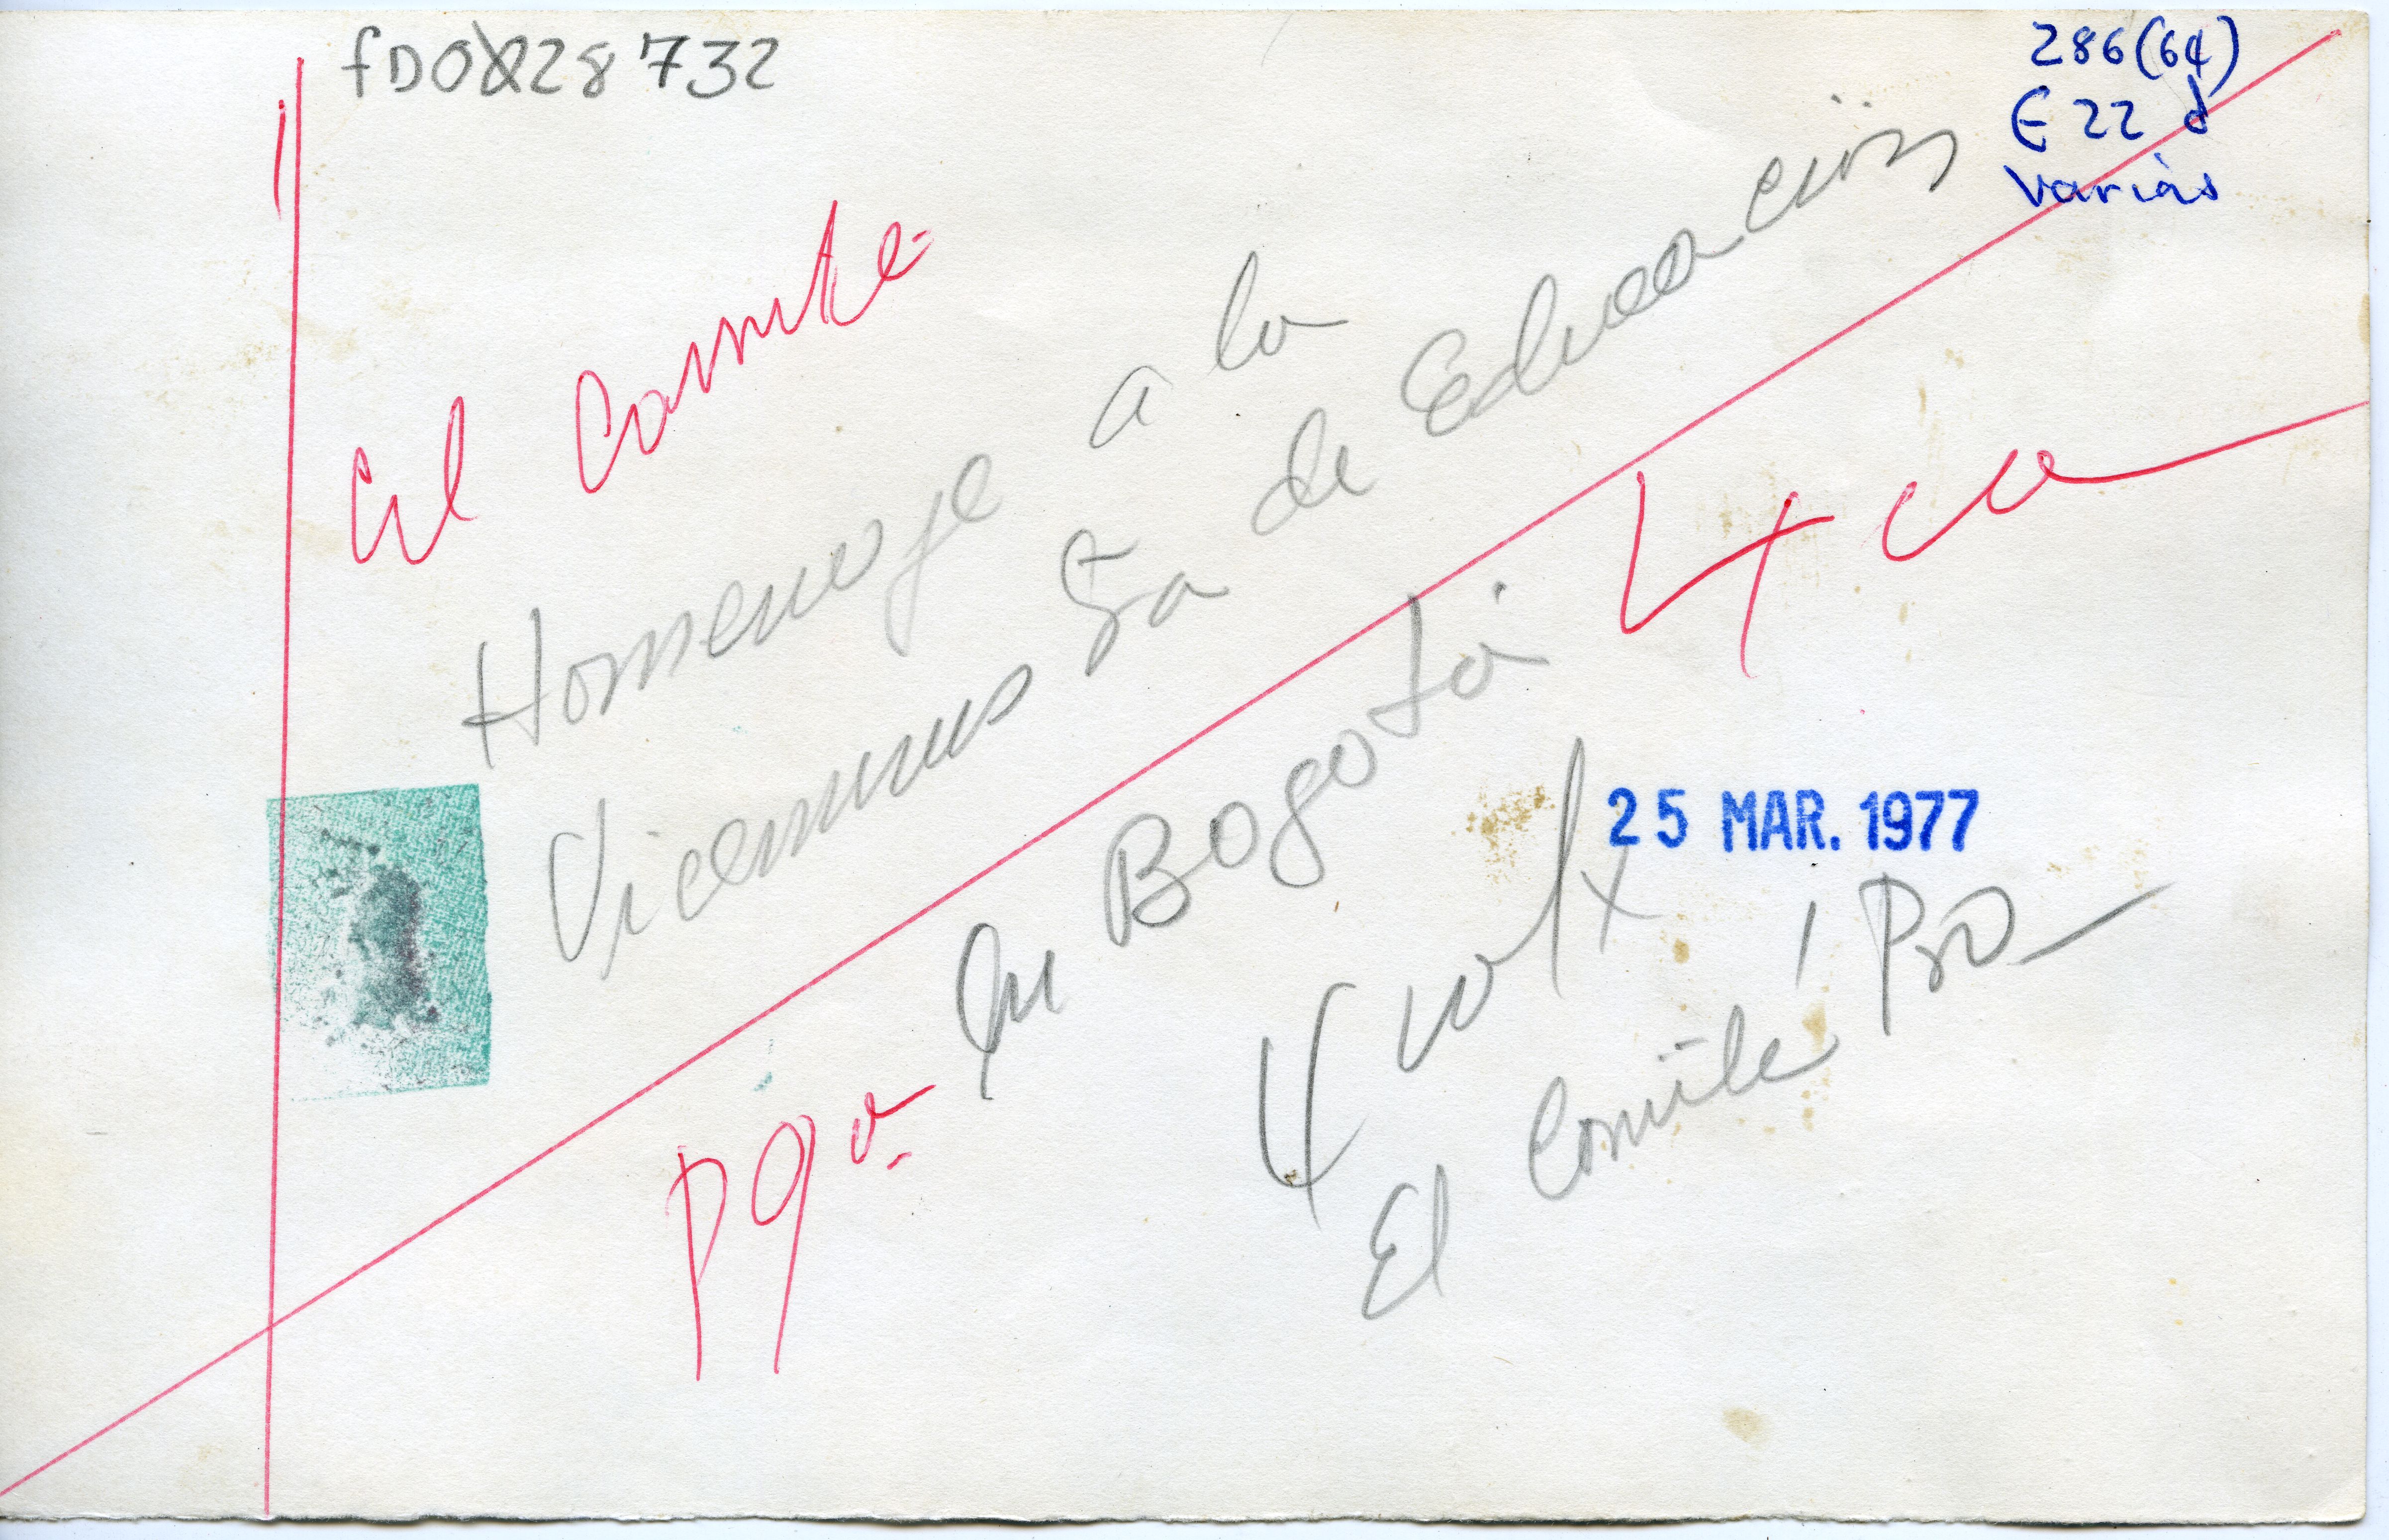 fD0028732
286(64)
E 22 d
varias
El Comite
Homenaje a la
Viceminis Tra de Educación
en Bogotá
4 col x
25 MAR. 1977
El Comité